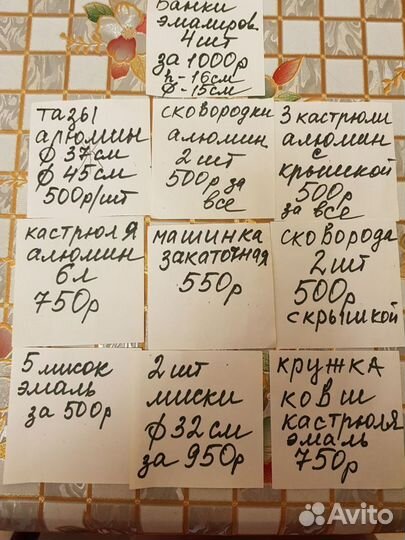 Банки
эмалиров
4шт
за 1000р
h-16см
ф-15см
тазы
алюмин
ф 37см
ф 45см
500р/шт
сковородки
алюмин
2шт
500р за
все
3 кастрюли
алюмин
с
крышкой
500р
за все
кастрюля
алюмин
6л
750р
машинка
закаточная
550р
сковорода
2шт
500р
скрышкой
5 мисок
эмаль
за 500р
2шт
миски
ф 32см
за 950р
кружка
ковш
кастрюля
эмаль
750р
Avito